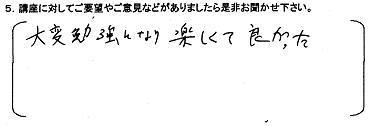 5. 講座に対してご要望やご意見などがありましたら是非お聞かせ下さい。
大変勉強になり楽しくて良かった